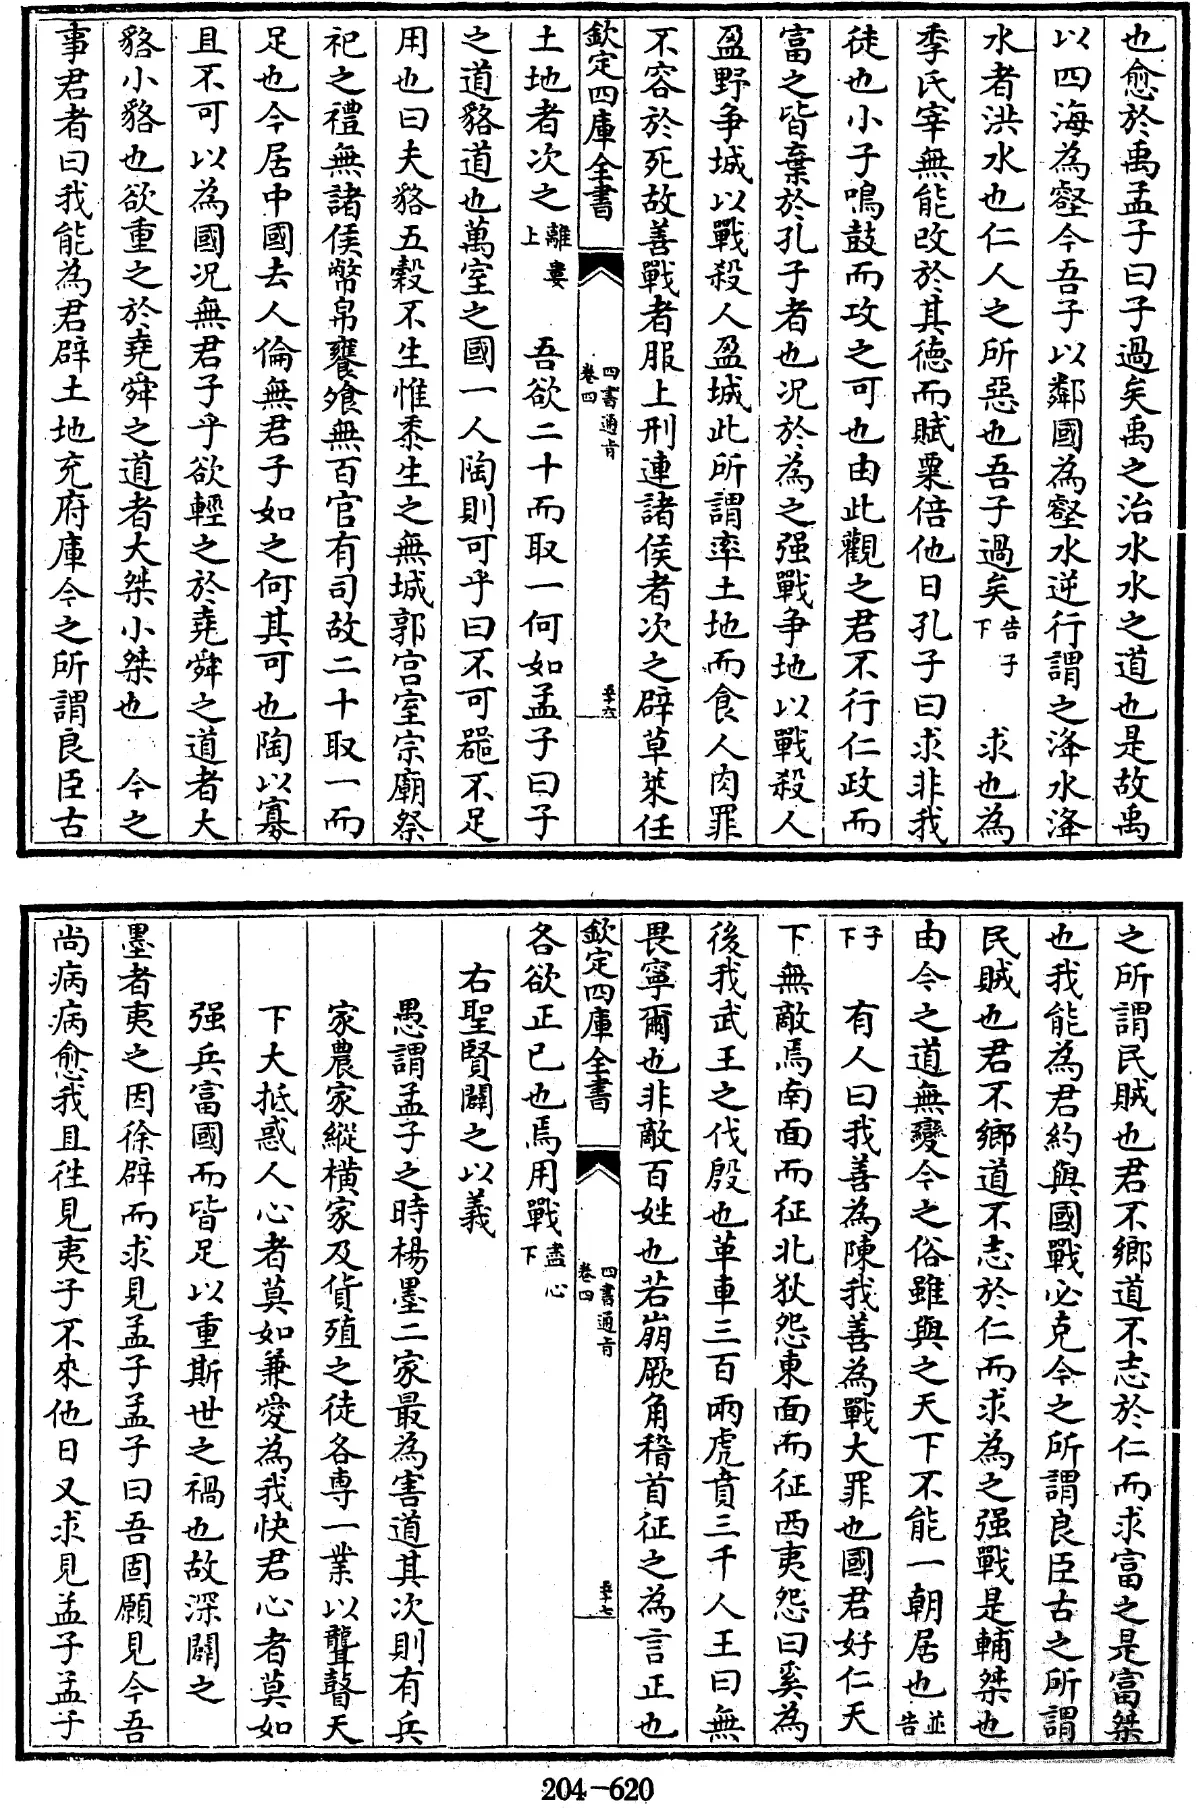 也愈於禹孟子曰子過矣禹之治水水之道也是故禹
以四海為壑今吾子以鄰國為壑水逆行謂之洚水洚
水者洪水也仁人之所惡也吾子過矣告子下　求也為
季氏宰無能改於其德而賦粟倍他日孔子曰求非我
徒也小子鳴鼓而攻之可也由此觀之君不行仁政而
富之皆棄於孔子者也况於為之强戰争地以戰殺人
盈野争城以戰殺人盈城此所謂率土地而食人肉罪
不容於死故善戰者服上刑連諸侯者次之辟草萊任
欽定四庫全書　四書通旨卷四　五十六
土地者次之離婁上　吾欲二十而取一何如孟子曰子
之道貉道也萬室之國一人陶則可乎曰不可器不足
用也曰夫貉五穀不生惟黍生之無城郭宫室宗廟祭
祀之禮無諸侯幣帛饔飱無百官有司故二十取一而
足也今居中國去人倫無君子如之何其可也陶以寡
且不可以為國况無君子乎欲輕之於堯舜之道者大
貉小貉也欲重之於堯舜之道者大桀小桀也　今之
事君者曰我能為君辟土地充府庫今之所謂良臣古
之所謂民賊也君不鄉道不志於仁而求富之是富桀
也我能為君約與國戰必克今之所謂良臣古之所謂
民賊也君不鄉道不志於仁而求為之强戰是輔桀也
由今之道無變今之俗雖與之天下不能一朝居也並告
子下　有人曰我善為陳我善為戰大罪也國君好仁天
下無敵焉南面而征北狄怨東面而征西夷怨曰奚為
後我武王之伐殷也革車三百兩虎賁三千人王曰無
畏寧爾也非敵百姓也若崩厥角稽首征之為言正也
欽定四庫全書　四書通旨卷四　五十七
各欲正已也焉用戰盡心下
右聖賢闢之以義
愚謂孟子之時楊墨二家最為害道其次則有兵
家農家縱横家及貨殖之徒各専一業以聾瞽天
下大抵惑人心者莫如兼愛為我快君心者莫如
强兵富國而皆足以重斯世之禍也故深闢之
墨者夷之因徐辟而求見孟子孟子曰吾固願見今吾
尚病病愈我且徃見夷子不來他日又求見孟子孟子
204-620